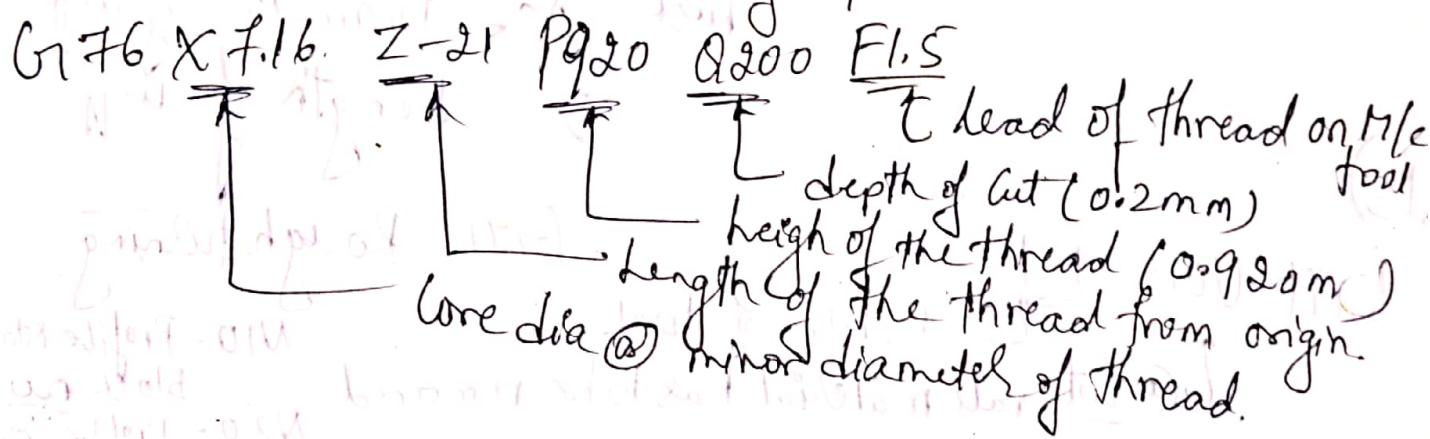 G76 X 7.16. Z-21 P920 Q200 F1.5
Lead of thread on M/c tool
depth of Cut (0.2mm)
heigh of the thread (0.920m)
Length of the thread from origin.
Core dia @ minor diameter of thread.